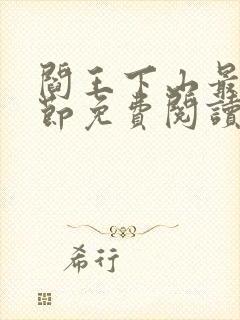 閻王下山最
節免費閱讀
希行